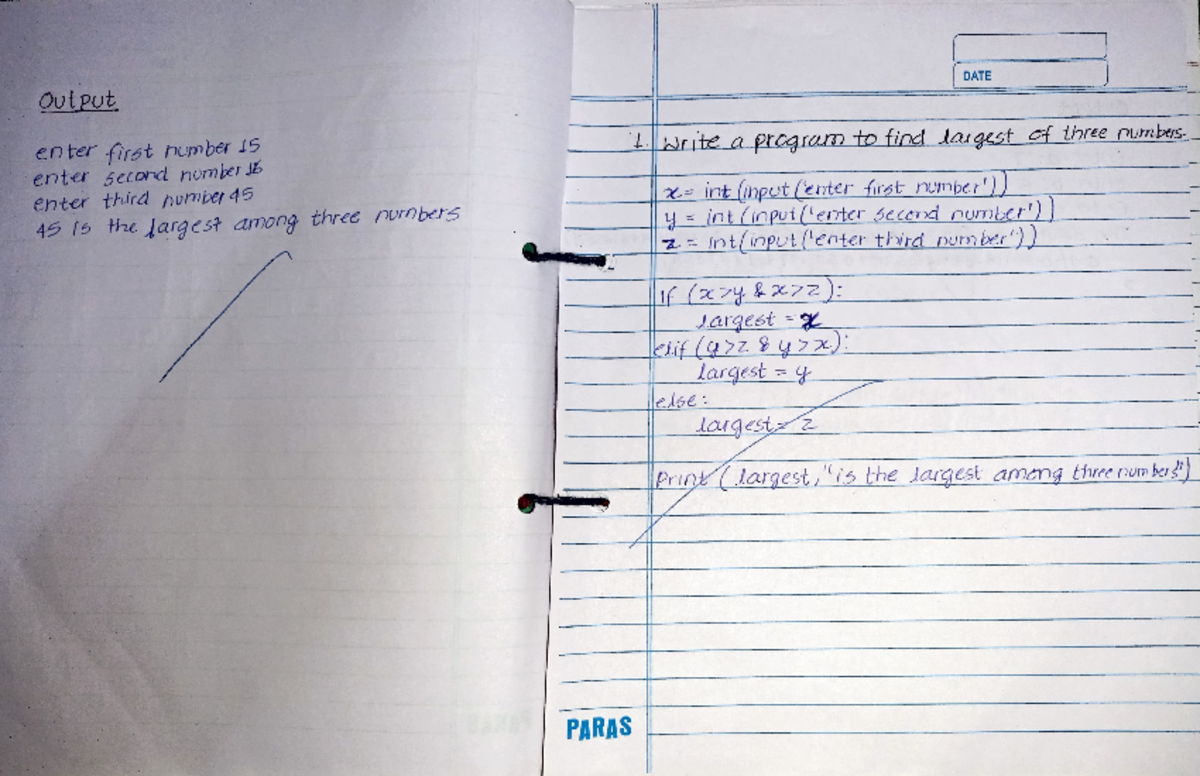 Output
enter first number 15
enter second number 16
enter third number 45
45 is the largest among three numbers
DATE
1. Write a program to find largest of three numbers.
x = int (input ('enter first number'))
y = int (input ('enter second number'))
z = int (input ('enter third number'))
if (x>y & x>z):
largest = x
elif (y>z & y>x):
largest = y
else:
largest = z
Print (largest, "is the largest among three numbers")
PARAS